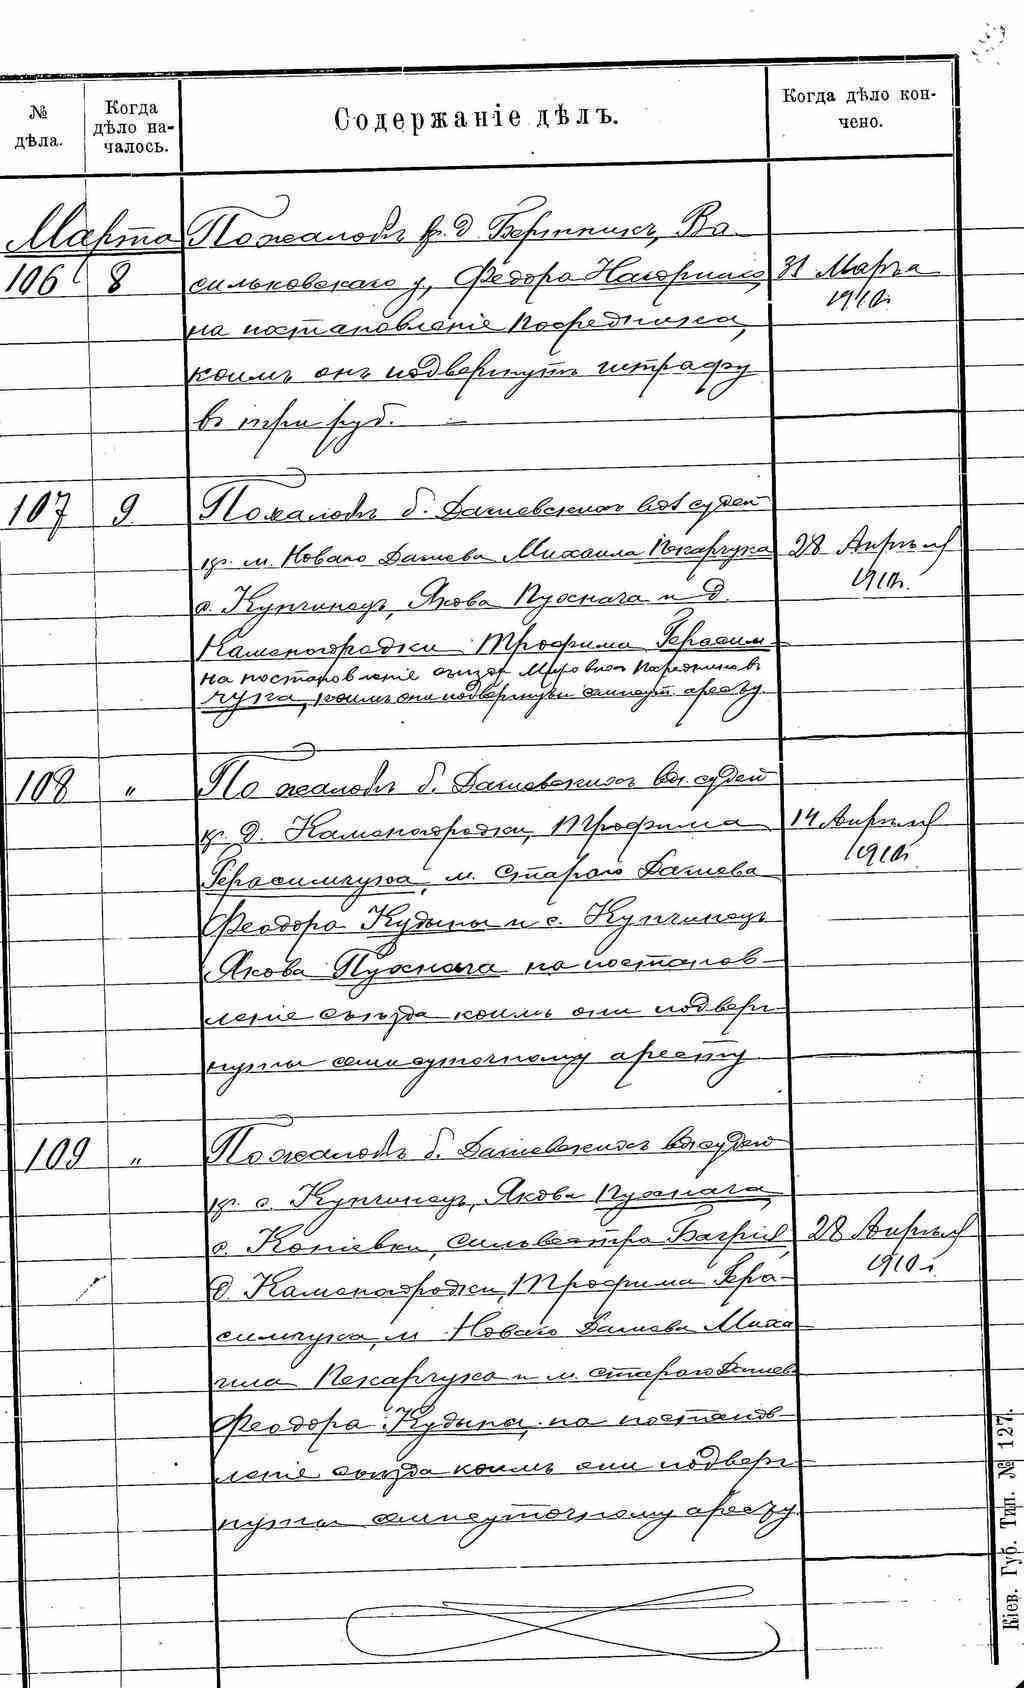 № дѣла.
Когда дѣло началось.
Содержаніе дѣлъ.
Когда дѣло кончено.
Марта По жалобѣ кр. д. Бертник, Ва-
106 8 сильковскаго у., Федора Нагорнаго, 31 Марта
на постановленіе посредника, 1910г.
коимъ онъ подвергнутъ штрафу
въ три руб. —
107 9 По жалобѣ б. Дашевскихъ вол судей
кр. м. Новаго Дашева Михаила Пекарчука 28 Апрѣля
с. Купчинец, Якова Пухнача и д. 1910г.
Каменогородки Трофима Герасим-
на постановленіе съѣзда Мировыхъ Посредниковъ
чука, коимъ они подвергнуты семисут. аресту.
108 " По жалобѣ б. Дашевскихъ вол. судей
кр. д. Каменогородки, Трофима 14 Апрѣля
Герасимчука, м. Стараго Дашева 1910г.
Феодора Кудыны и с. Купчинецъ
Якова Пухнача на постанов-
леніе съѣзда коимъ они подверг-
нуты семисуточному аресту
109 " По жалобѣ б. Дашевскихъ вол судей
кр. с. Купчинец, Якова Пухнача,
с. Копіевки, Сильвестра Багрія, 28 Апрѣля
д. Каменогородки, Трофима Гера- 1910 г.
симчука, м. Новаго Дашева Миха-
ила Пекарчука и м. Стараго Дашев.
Феодора Кудыны, на постанов-
леніе съѣзда коимъ они подверг-
нуты семисуточному аресту.
Кіев. Губ. Тип. № 127.